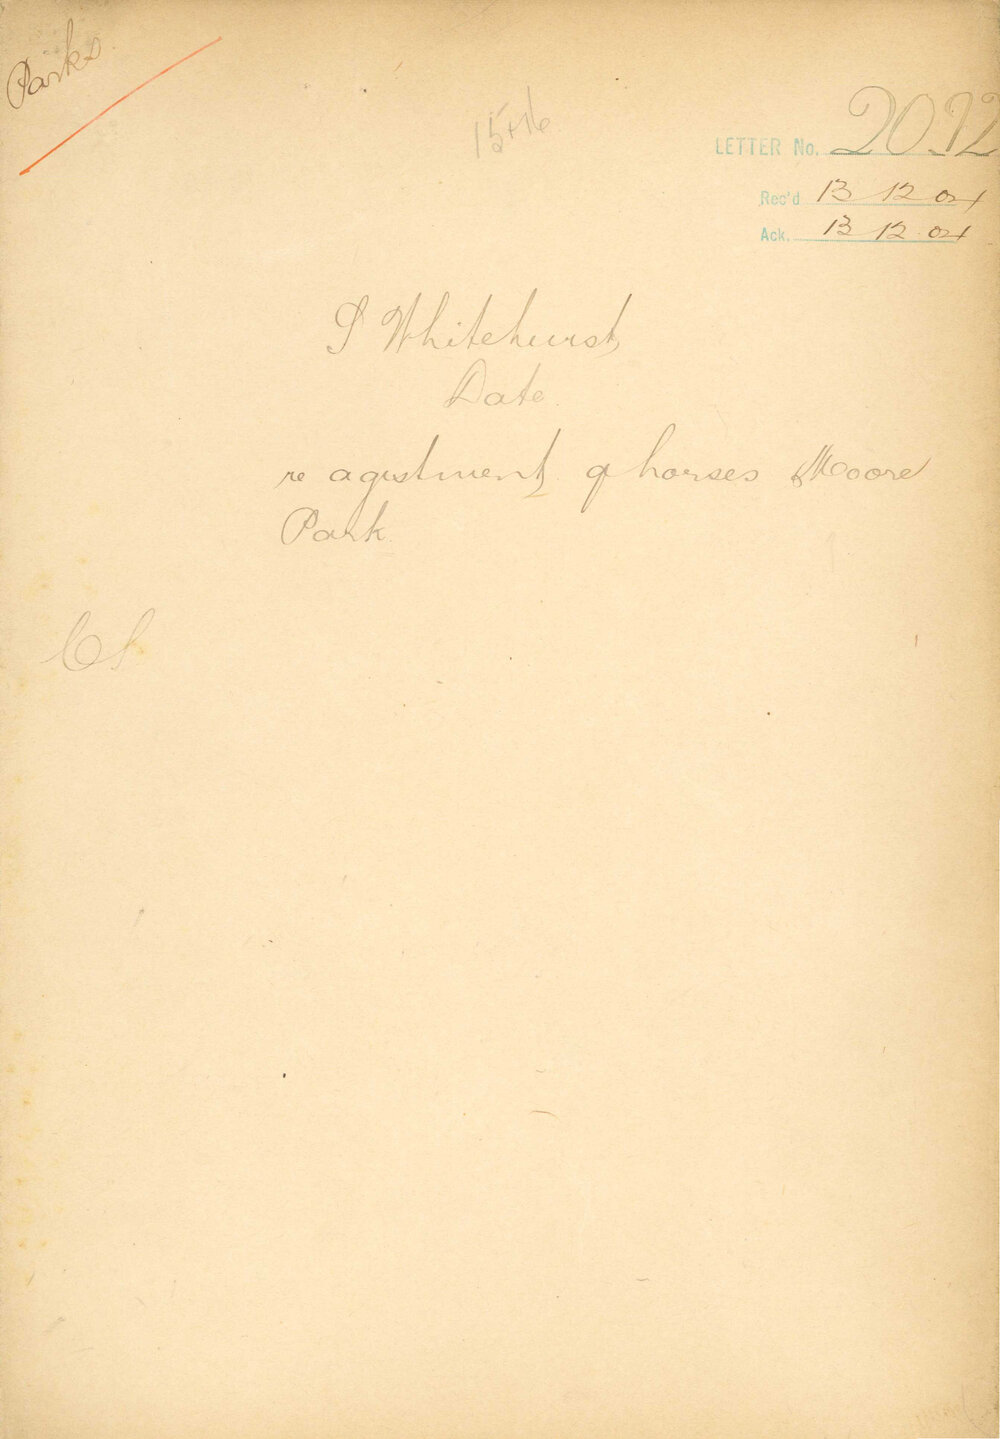 Parks
15+16
LETTER No. 2092
Rec'd 13 12 04
Ack. 13 12 04
S Whitehurst
Date
re agistment of horses Moore
Park